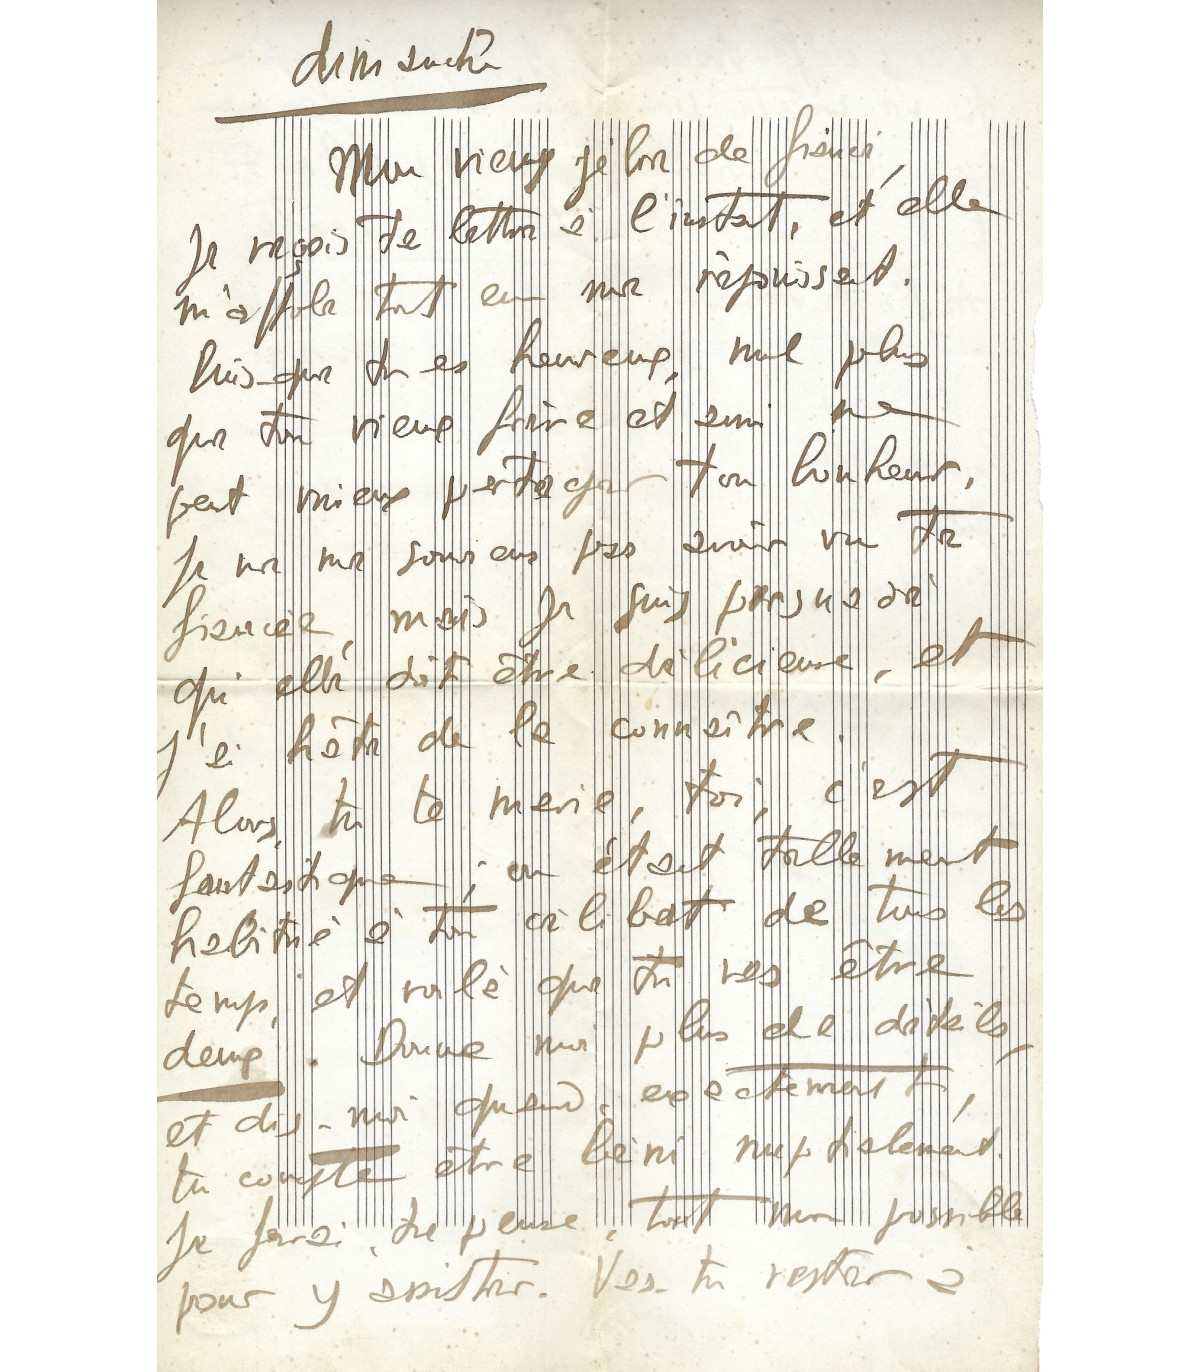 dimanche
Mon vieux de fiancé,
Je reçois ta lettre à l'instant, et elle
m'affole tout en me réjouissant.
Puis-que tu es heureux, nul plus
que ton vieux frère et ami ne
peut mieux partager ton bonheur.
Je ne me souviens pas avoir vu ta
fiancée, mais je suis persuadé
qu'elle doit être délicieuse, et
j'ai hâte de la connaître.
Alors, tu te marie, toi, c'est
fantastique ; on était tellement
habitué à ton célibat de tous les
temps, et voilà que tu vas être
deux. Donne moi plus de détails,
et dis-moi quand, exactement,
tu compte être béni nuptialement.
Je ferai, je pense, tout mon possible
pour y assister. Vas-tu rester à